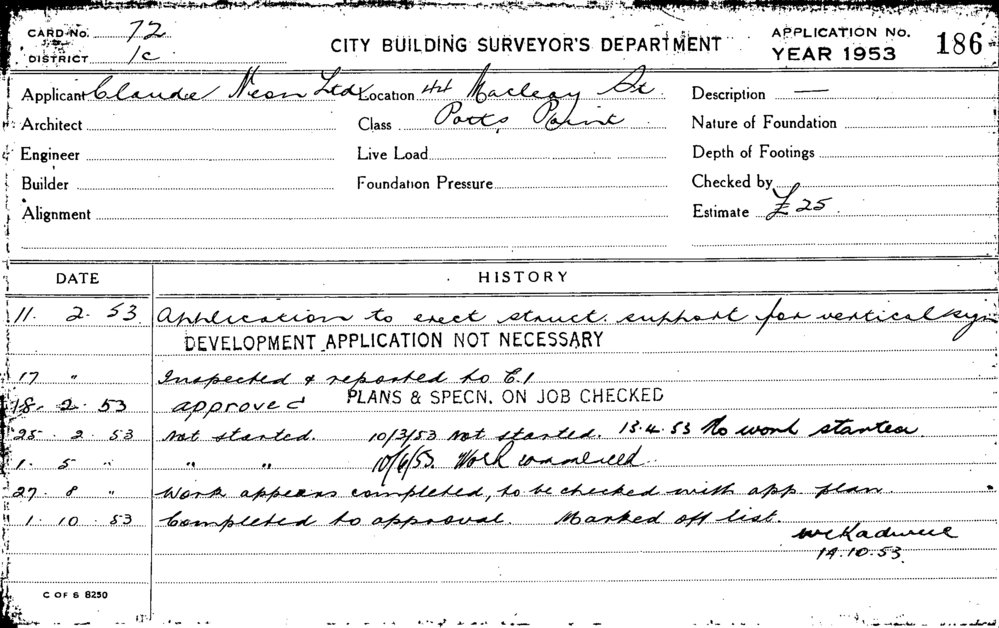 CARD No. 72
DISTRICT 1c
CITY BUILDING SURVEYOR'S DEPARTMENT
APPLICATION No. 186
YEAR 1953
Applicant Claude Neon Ltd Location 44 Macleay St. Description —
Architect Class Potts Point Nature of Foundation
Engineer Live Load Depth of Footings
Builder Foundation Pressure Checked by
Alignment Estimate £25.
DATE HISTORY
11. 2. 53. Application to erect struct. support for vertical sign
DEVELOPMENT APPLICATION NOT NECESSARY
17 " Inspected & reported to C.I
18. 2. 53 approved PLANS & SPECN. ON JOB CHECKED
25. 2. 53 Not started. 10/3/53 Not started. 13.4.53 No work started
1. 5 " " " 10/6/53. Work commenced
27. 8 " Work appears completed, to be checked with app plan.
1. 10. 53 Completed to approval. Marked off list.
14.10.53.
C OF S 8250